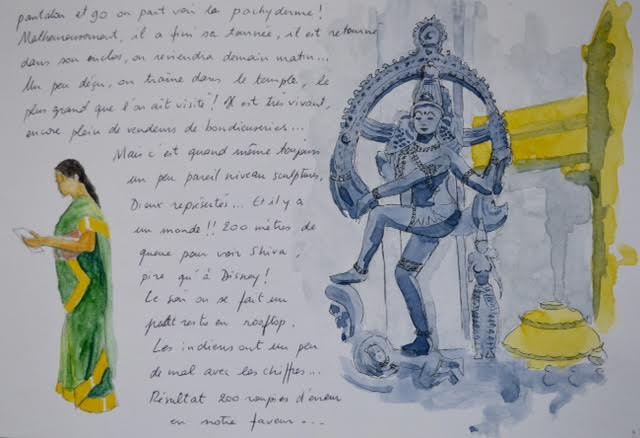 pantalon et go on part voir le pachyderme !
Malheureusement, il a fini sa tournée, il est retourné
dans son enclos, on reviendra demain matin...
Un peu déçu, on traîne dans le temple, le
plus grand que l'on ait visité ! Il est très vivant,
encore plein de vendeurs de bondieuseries...
Mais c'est quand même toujours
un peu pareil niveau sculptures,
Dieux représentés... Et il y a
un monde !! 200 mètres de
queue pour voir Shiva,
pire qu'à Disney !
Le soir on se fait un
petit resto en rooftop.
Les indiens ont un peu
de mal avec les chiffres...
Résultat 200 roupies d'erreur
en notre faveur...